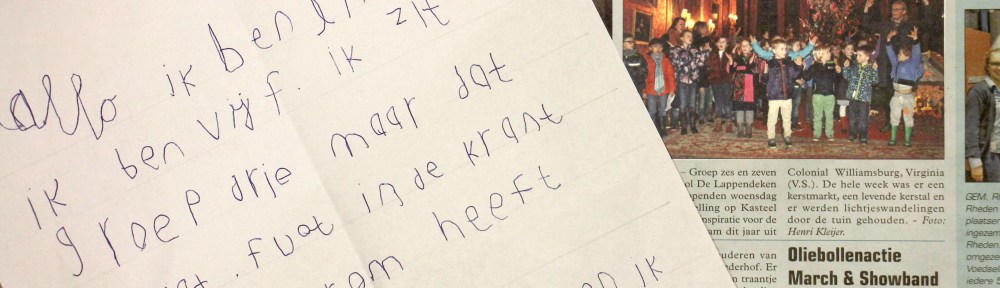 allo ik ben
ik ben vijf. ik zit
groep drie maar dat
in de krant
heeft
ik
– Groep zes en zeven
ol De Lappendeken
penden woensdag
lling op Kasteel
nspiratie voor de
am dit jaar uit
Colonial Williamsburg, Virginia
(V.S.). De hele week was er een
kerstmarkt, een levende kerstal en
er werden lichtjeswandelingen
door de tuin gehouden. - Foto:
Henri Kleijer.
uderen van
derhof. Er
n traantje
Oliebollenactie
March & Showband
GEM. R
Rheden
plaatsen
ingezam
Rheden.
omgeze
Voedsel
iedere